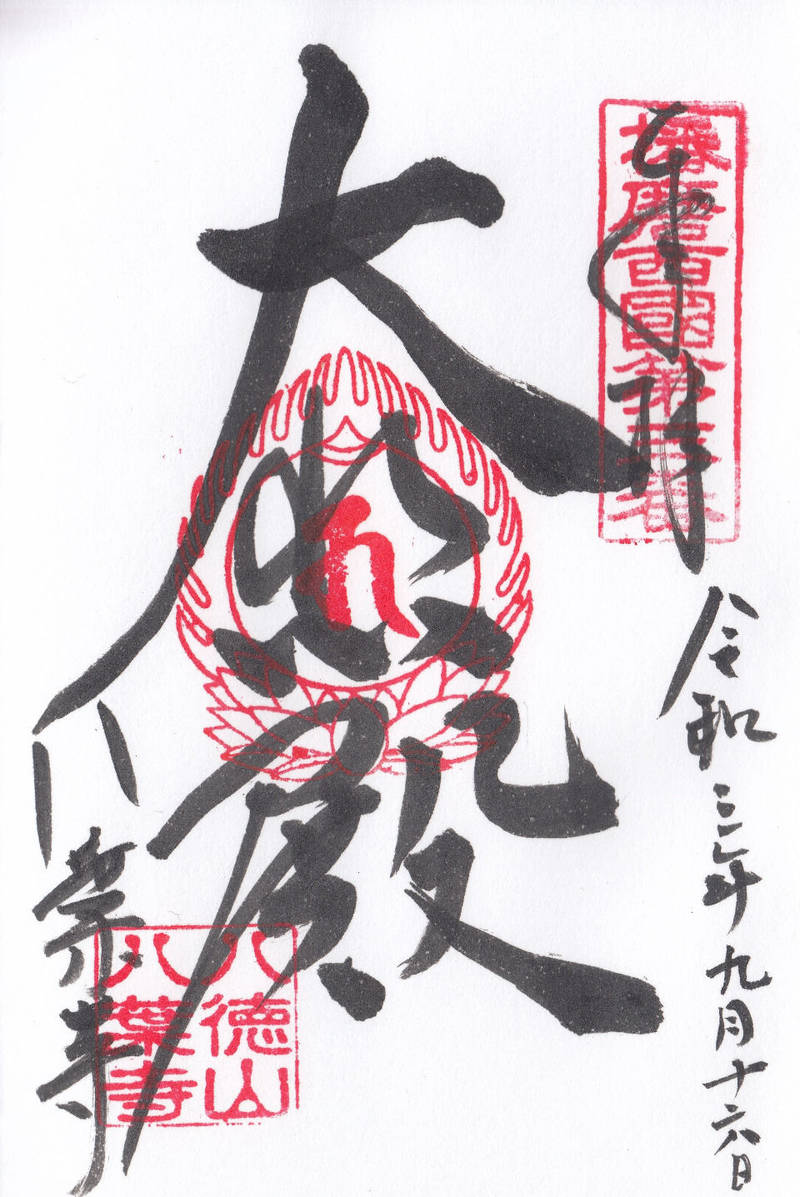 奉拝
播磨西國第三番
令和三年九月十六日
大悲殿
八葉寺
八徳山
八葉寺